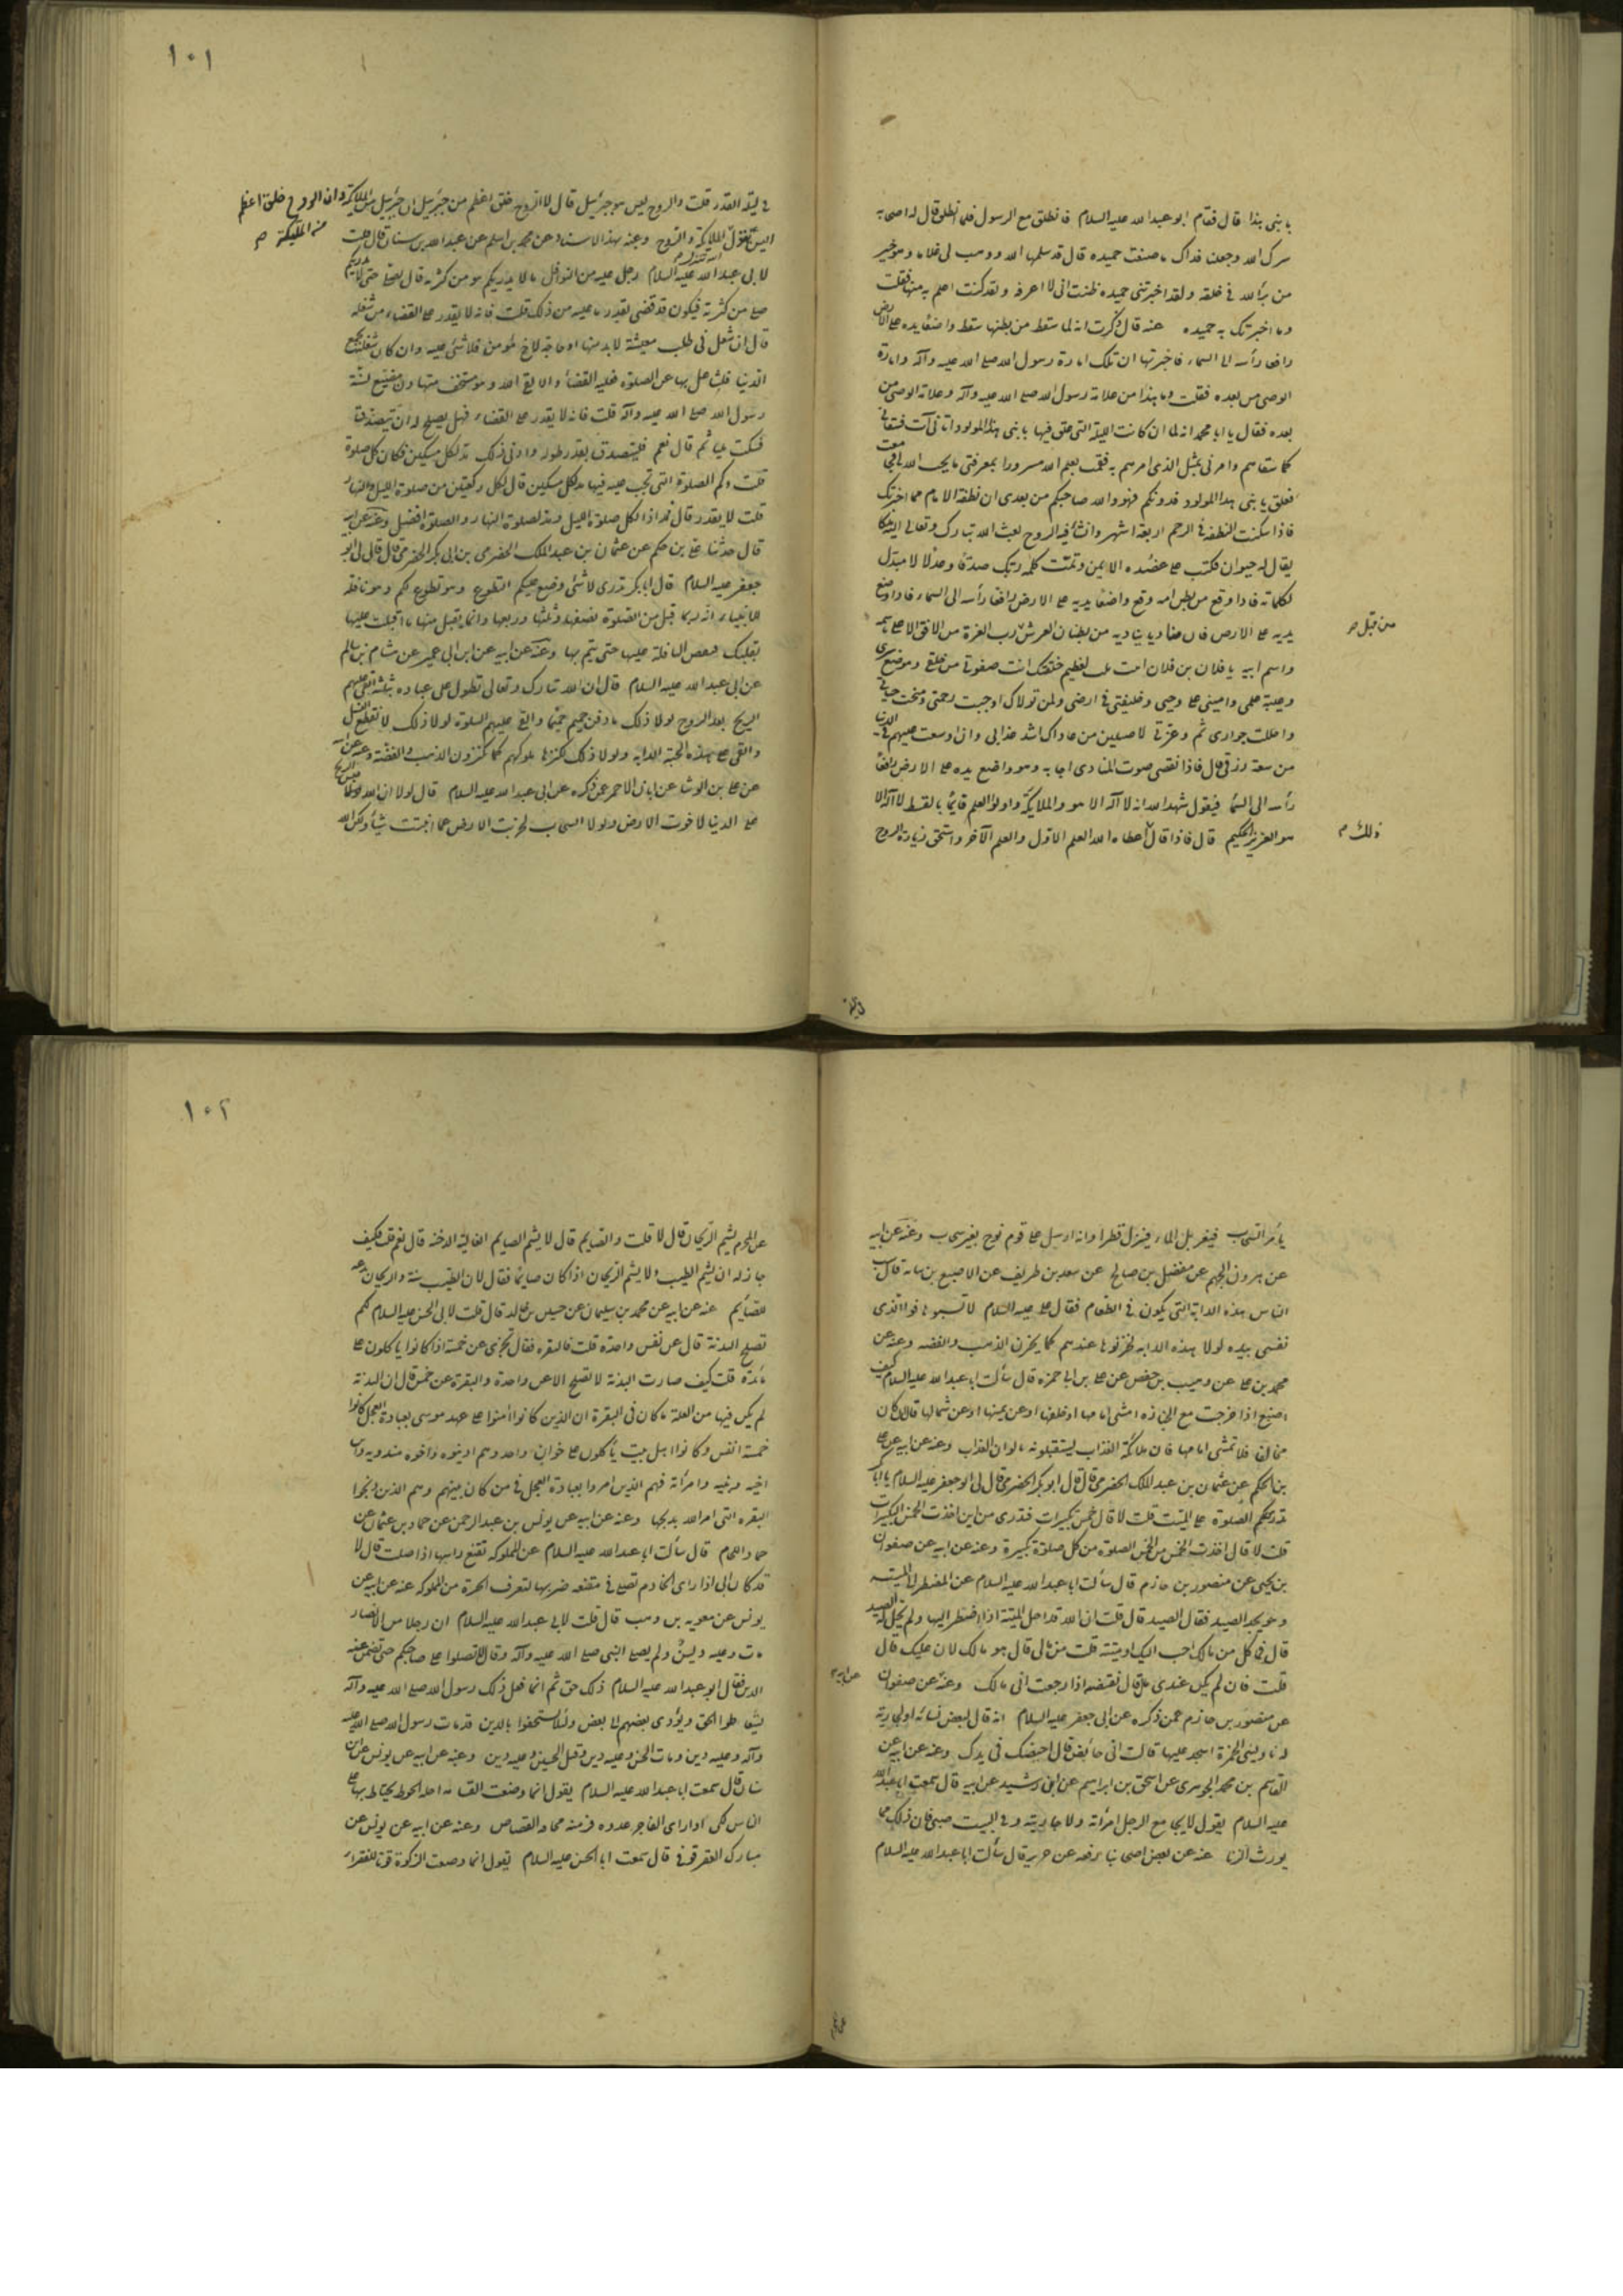 يا بنى بهذا قال فقام ابو عبدالله عليه السلام فانطلق مع الرسول فلما انطلق قال له اصحابه
سرك الله وجعلنا فداك ما صنعت حميده قال قد سلمها الله ووهب لى غلاما وهو خير
من برأ الله فى خلقه ولقد اخبرتنى حميده ظننت انى لا اعرفه ولقد كنت اعلم به منها فقلت
وما اخبرتك به حميده عنه قال ذكرت انه لما سقط من بطنها سقط واضعا يده على الارض
رافعا رأسه الى السماء فاخبرتها ان تلك امارة رسول الله صلى الله عليه وآله وامارة
الوصى من بعده فقلت وما هذا من علامة رسول الله صلى الله عليه وآله وعلامة الوصى من
بعده فقال يا ابا محمد انه لما ان كانت الليلة التى علق فيها يا بنى هذا المولود اتانى آت فسقانى
كما سقاهم وامرنى بمثل الذى امرهم به فقمت بعلم الله مسرورا بمعرفتى ما يهب الله لى فجامعت
فعلق يا بنى هذا المولود فدونكم فهو والله صاحبكم من بعدى ان نطفة الامام مما اخبرتك
فاذا سكنت النطفة فى الرحم اربعة اشهر وانشأ فيه الروح بعث الله تبارك وتعالى اليه ملكا
يقال له حيوان فكتب على عضده الايمن وتمت كلمة ربك صدقا وعدلا لا مبدل
لكلماته فاذا وقع من بطن امه وقع واضعا يديه على الارض رافعا رأسه الى السماء فاذا وضع
يديه على الارض فان مناديا يناديه من بطنان العرش رب العزة من الافق الاعلى باسمه
من قبل ص
واسم ابيه يا فلان بن فلان اثبت لعظيم خلقتك انت صفوتى من خلقى وموضع سرى
وعيبة علمى وامينى على وحيى وخليفتى فى ارضى ولمن تولاك اوجبت رحمتى ومنحت جنانى
واحللت جوارى ثم وعزتى لاصلين من عاداك اشد عذابى وان اوسعت عليهم فى الدنيا
من سعة رزقى قال فاذا انقضى صوت المنادى اجابه وهو واضع يده على الارض رافعا
رأسه الى السماء فيقول شهد الله انه لا اله الا هو والملائكة واولوا العلم قائما بالقسط لا اله الا
هو العزيز الحكيم قال فاذا قال اعطاه الله العلم الاول والعلم الآخر واستحق زيادة الروح
ذلك م
١٠١
فى ليلة القدر قلت والروح ليس هو جبرئيل قال لا الروح خلق اعظم من جبرئيل ان جبرئيل من الملائكة وان الروح خلق اعظم
من الملئكة ص
اليس يقول الملائكة والروح وعنه بهذا الاسناد عن محمد بن اسلم عن عبدالله بن سنان قال قلت
لابى عبدالله عليه السلام رجل عليه من النوافل ما لا يدريكم هو من كثرته قال يصلى حتى لا يدريكم
صلى من كثرته فيكون قد قضى بقدر ما عليه من ذلك قلت فانه لا يقدر على القضاء من شغله
قال ان شغل فى طلب معيشة لا بد منها او حاجة لاخ مؤمن فلا شئ عليه وان كان شغله بجمع
الدنيا فتشاغل بها عن الصلوة فعليه القضاء والا لقى الله وهو مستخف متهاون مضيع لسنة
رسول الله صلى الله عليه وآله قلت فانه لا يقدر على القضاء فهل يصلح له ان يتصدق
فسكت مليا ثم قال نعم فليتصدق بقدر طوله وادنى ذلك مد لكل مسكين مكان كل صلوة
قلت وكم الصلوة التى تجب عليه فيها مد لكل مسكين قال لكل ركعتين من صلوة الليل والنهار
قلت لا يقدر قال فمد اذا لكل صلوة الليل ومد لصلوة النهار والصلوة افضل وعنه عن ابيه
قال حدثنا على بن حكم عن عثمان بن عبدالملك الحضرمى بن ابى بكر الحضرمى قال قال لى ابو
جعفر عليه السلام قال ابا بكر تدرى لاى شئ وضع عليكم التطوع وهو تطوع لكم وهو نافلة
للانبياء انه ربما قبل من الصلوة نصفها وثلثها وربعها وانما يقبل منها ما اقبلت عليها
بقلبك فجعل النافلة عليها حتى يتم بها وعنه عن ابيه عن ابن ابى عمير عن هشام بن سالم
عن ابى عبدالله عليه السلام قال ان الله تبارك وتعالى تطول على عباده بثلثة القى عليهم
الريح بعد الروح لولا ذلك ما دفن حميم حميما والقى عليهم السلوة لولا ذلك لانقطع النسل
والقى على هذه الحبة الدابة ولولا ذلك لكنزها ملوكهم كما يكنزون الذهب والفضة وعنه عن ابيه
عن على بن الوشا عن ابان الاحمر عن ذكره عن ابى عبدالله عليه السلام قال لولا ان الله حبس الريح
على الدنيا لاخوت الارض ولولا السحاب لخربت الارض فما انبتت شيئا ولكن الله
يأمر السحاب فيغربل الماء فينزل قطرا وانه ارسل على قوم نوح بغير سحاب وعنه عن ابيه
عن هرون بن الجهم عن مفضل بن صالح عن سعد بن طريف عن الاصبغ بن نباته قال سب
الناس هذه الدابة التى يكون فى الطعام فقال على عليه السلام لا تسبوها فوالذى
نفسى بيده لولا هذه الدابه لخزنوها عندهم كما يخزن الذهب والفضه وعنه عن
محمد بن على عن وهيب بن حفص عن على بن ابى حمزه قال سألت ابا عبدالله عليه السلام كيف
اصنع اذا خرجت مع الجنازه امشى امامها او خلفها او عن يمينها او عن شمالها قال ان كان
مخالفا فلا تمشى امامها فان ملائكة العذاب يستقبلونه بالوان العذاب وعنه عن ابيه عن على
بن الحكم عن عثمان بن عبد الملك الحضرمى قال قال ابو بكر الحضرمى قال لى ابو جعفر عليه السلام يا ابا بكر
تدرى كم الصلوة على الميت قلت لا قال خمس تكبيرات فتدرى من اين اخذت الخمس التكبيرات
قلت لا قال اخذت الخمس من الخمس الصلوة من كل صلوة تكبيرة وعنه عن ابيه عن صفوان
بن يحيى عن منصور بن حازم قال سألت ابا عبدالله عليه السلام عن المضطر الى الميتة
وهو يجد الصيد فقال الصيد قال قلت ان الله قد احل الميتة اذا اضطر اليها ولم يحل له الصيد
قال فتأكل من مالك احب اليك او ميتة قلت من مالى قال هو مالك لان عليك قال
قلت فان لم يكن عندى مال قال تقتضه اذا رجعت الى مالك وعنه عن صفوان
عن ابيه م
عن منصور بن حازم عمن ذكره عن ابى جعفر عليه السلام انه قال لبعض نسائه او لجارية
له ناولينى الخمرة اسجد عليها قالت انى حائض قال احيضك فى يدك وعنه عن ابيه عن
القاسم بن محمد الجوهرى عن اسحق بن ابراهيم عن ابى رشيد عن ابيه قال سمعت ابا عبدالله
عليه السلام يقول لا يجامع الرجل امرأته ولا جاريته وفى البيت صبى فان ذلك مما
يورث الزنا عنه عن بعض اصحابنا رفعه عن حريز قال سألت ابا عبدالله عليه السلام
١٠٢
عن المحرم يشم الريحان قال لا قلت والصايم قال لا يشم الصايم الغالية الدخنه قال نعم قلت فكيف
جاز له ان يشم الطيب ولا يشم الريحان اذا كان صايما فقال لان الطيب سنة والريحان بدعه
للصايم عنه عن ابيه عن محمد بن سليمان عن حسين بن خالد قال قلت لابى الحسن عليه السلام لكم
تصلح البدنة قال عن نفس واحدة قلت فالبقره فقال تجزى عن خمسة اذا كانوا ياكلون على
مائدة قلت كيف صارت البدنة لا تصلح الا عن واحدة والبقرة عن خمس قال ان البدنة
لم يكن فيها من العلة ما كان فى البقرة ان الذين كانوا امنوا على عهد موسى بعبادة العجل كانوا
خمسة انفس وكانوا اهل بيت يأكلون على خوان واحد وهم اذينوه واخوه مندويه وابن
اخيه وابنته وامرأته فهم الذين امروا بعبادة العجل فى من كان بينهم وهم الذين ذبحوا
البقره التى امر الله بذبحها وعنه عن ابيه عن يونس بن عبد الرحمن عن حماد بن عثمان عن
حماد اللحام قال سألت ابا عبدالله عليه السلام عن المملوكه تقنع راسها اذا صلت قال لا
قد كان ابى اذا راى الخادم تصلى فى مقنعه ضربها لتعرف الحرة من المملوكه عنه عن ابيه عن
يونس عن معويه بن وهب قال قلت لابى عبدالله عليه السلام ان رجلا من الانصار
مات وعليه دين ولم يصل النبى صلى الله عليه وآله وقال لا تصلوا على صاحبكم حتى تضمن عنه
الدين فقال ابو عبدالله عليه السلام ذلك حق ثم انما فعل ذلك رسول الله صلى الله عليه وآله
ليتعاطوا الحق ويؤدى بعضهم الى بعض ولئلا يستخفوا بالدين قد مات رسول الله صلى الله عليه
وآله وعليه دين ومات الحسن وعليه دين وقتل الحسين وعليه دين وعنه عن ابيه عن يونس عن ابن
سنان قال سمعت ابا عبدالله عليه السلام يقول انما وضعت القسامه لعلة الحوط يحتاط بها على
الناس لكى اذا راى الفاجر عدوه فر منه مخافة القصاص وعنه عن ابيه عن يونس عن
مبارك العقرقوفى قال سمعت ابا الحسن عليه السلام يقول انما وضعت الزكوة قوتا للفقراء